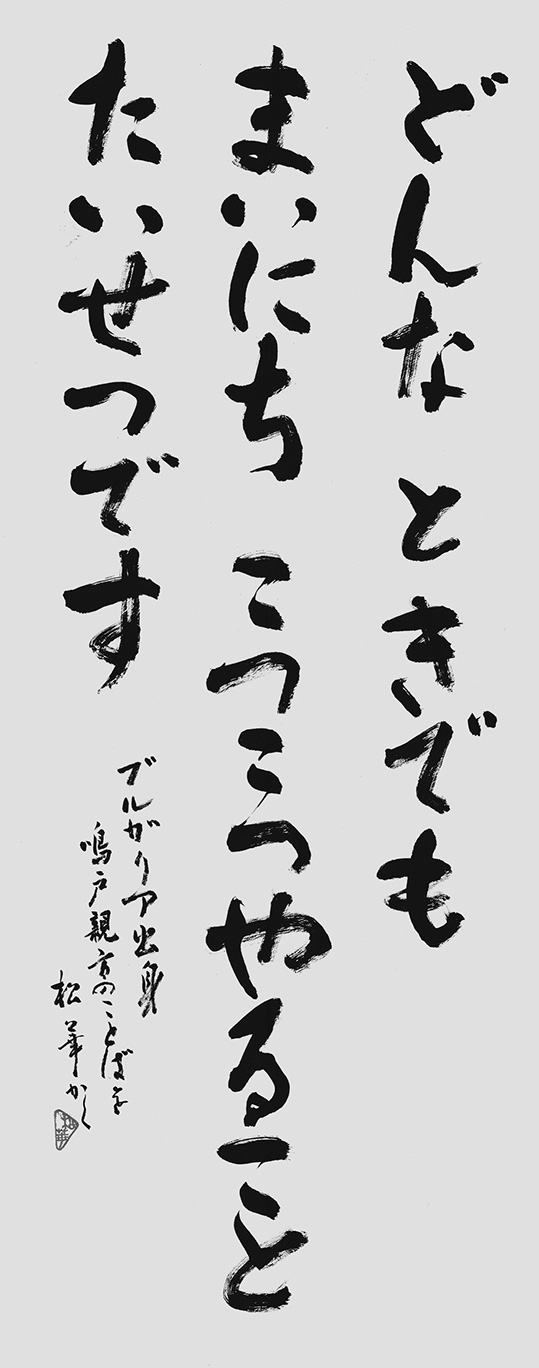 どんな ときでも
まいにち こつこつやること
たいせつです
ブルガリア出身
鳴戸親方のことばを
松華かく